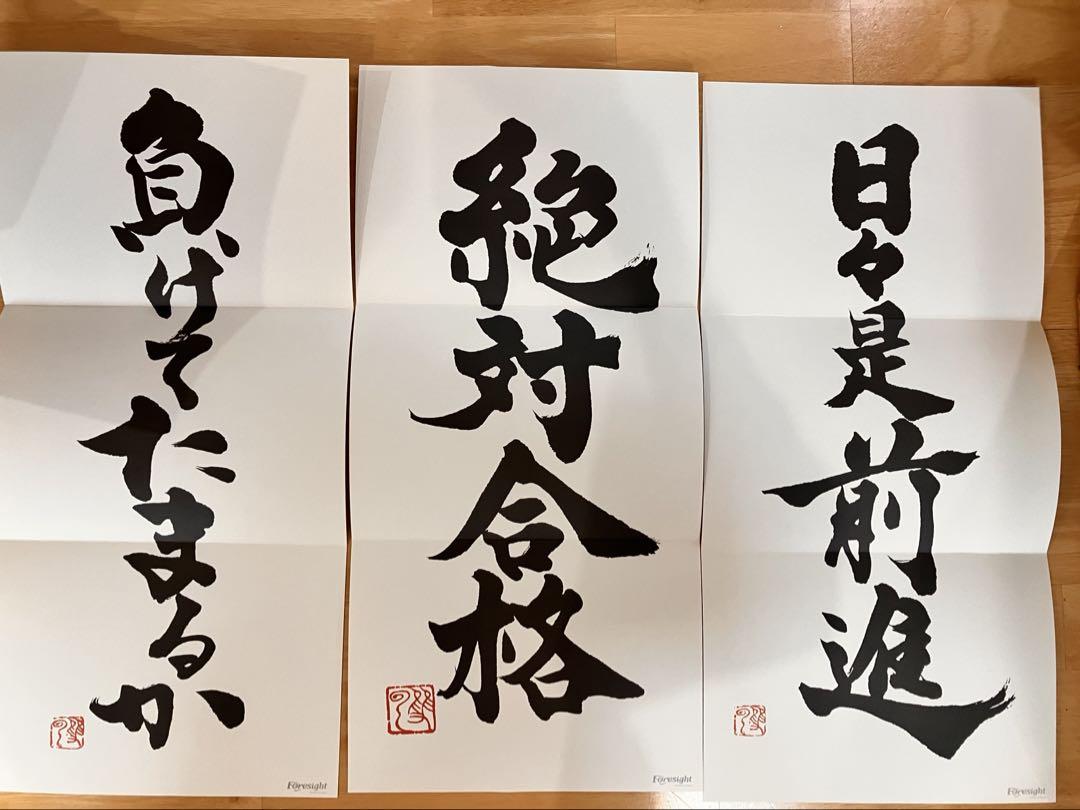 日々是前進
絶対合格
負けてたまるか
Foresight
Foresight
Foresight